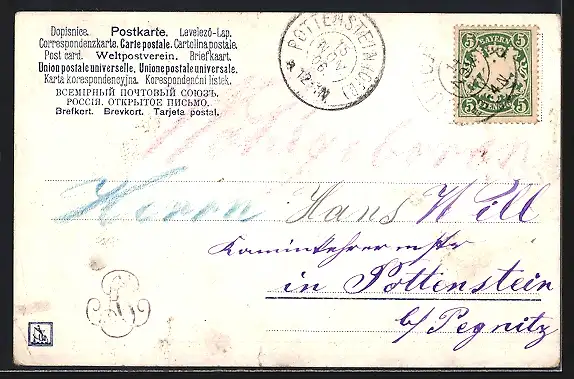 Dopisnice. Postkarte. Levelező-Lap.
Correspondenzkarte. Carte postale. Cartolina postale.
Post card. Weltpostverein. Briefkaart.
Union postale universelle, Unione postale universale.
Karta korespondencyjna. Korespondenční listek.
ВСЕМІРНЫЙ ПОЧТОВЫЙ СОЮЗЪ.
РОССІЯ. ОТКРЫТОЕ ПИСЬМО.
Brefkort. Brevkort. Tarjeta postal.
POTTENSTEIN
5 BAYERN 5
5 PFENNIG 5
Wohlgeboren
Herrn Hans Will
Kaminkehrermstr
in Pottenstein
b/ Pegnitz